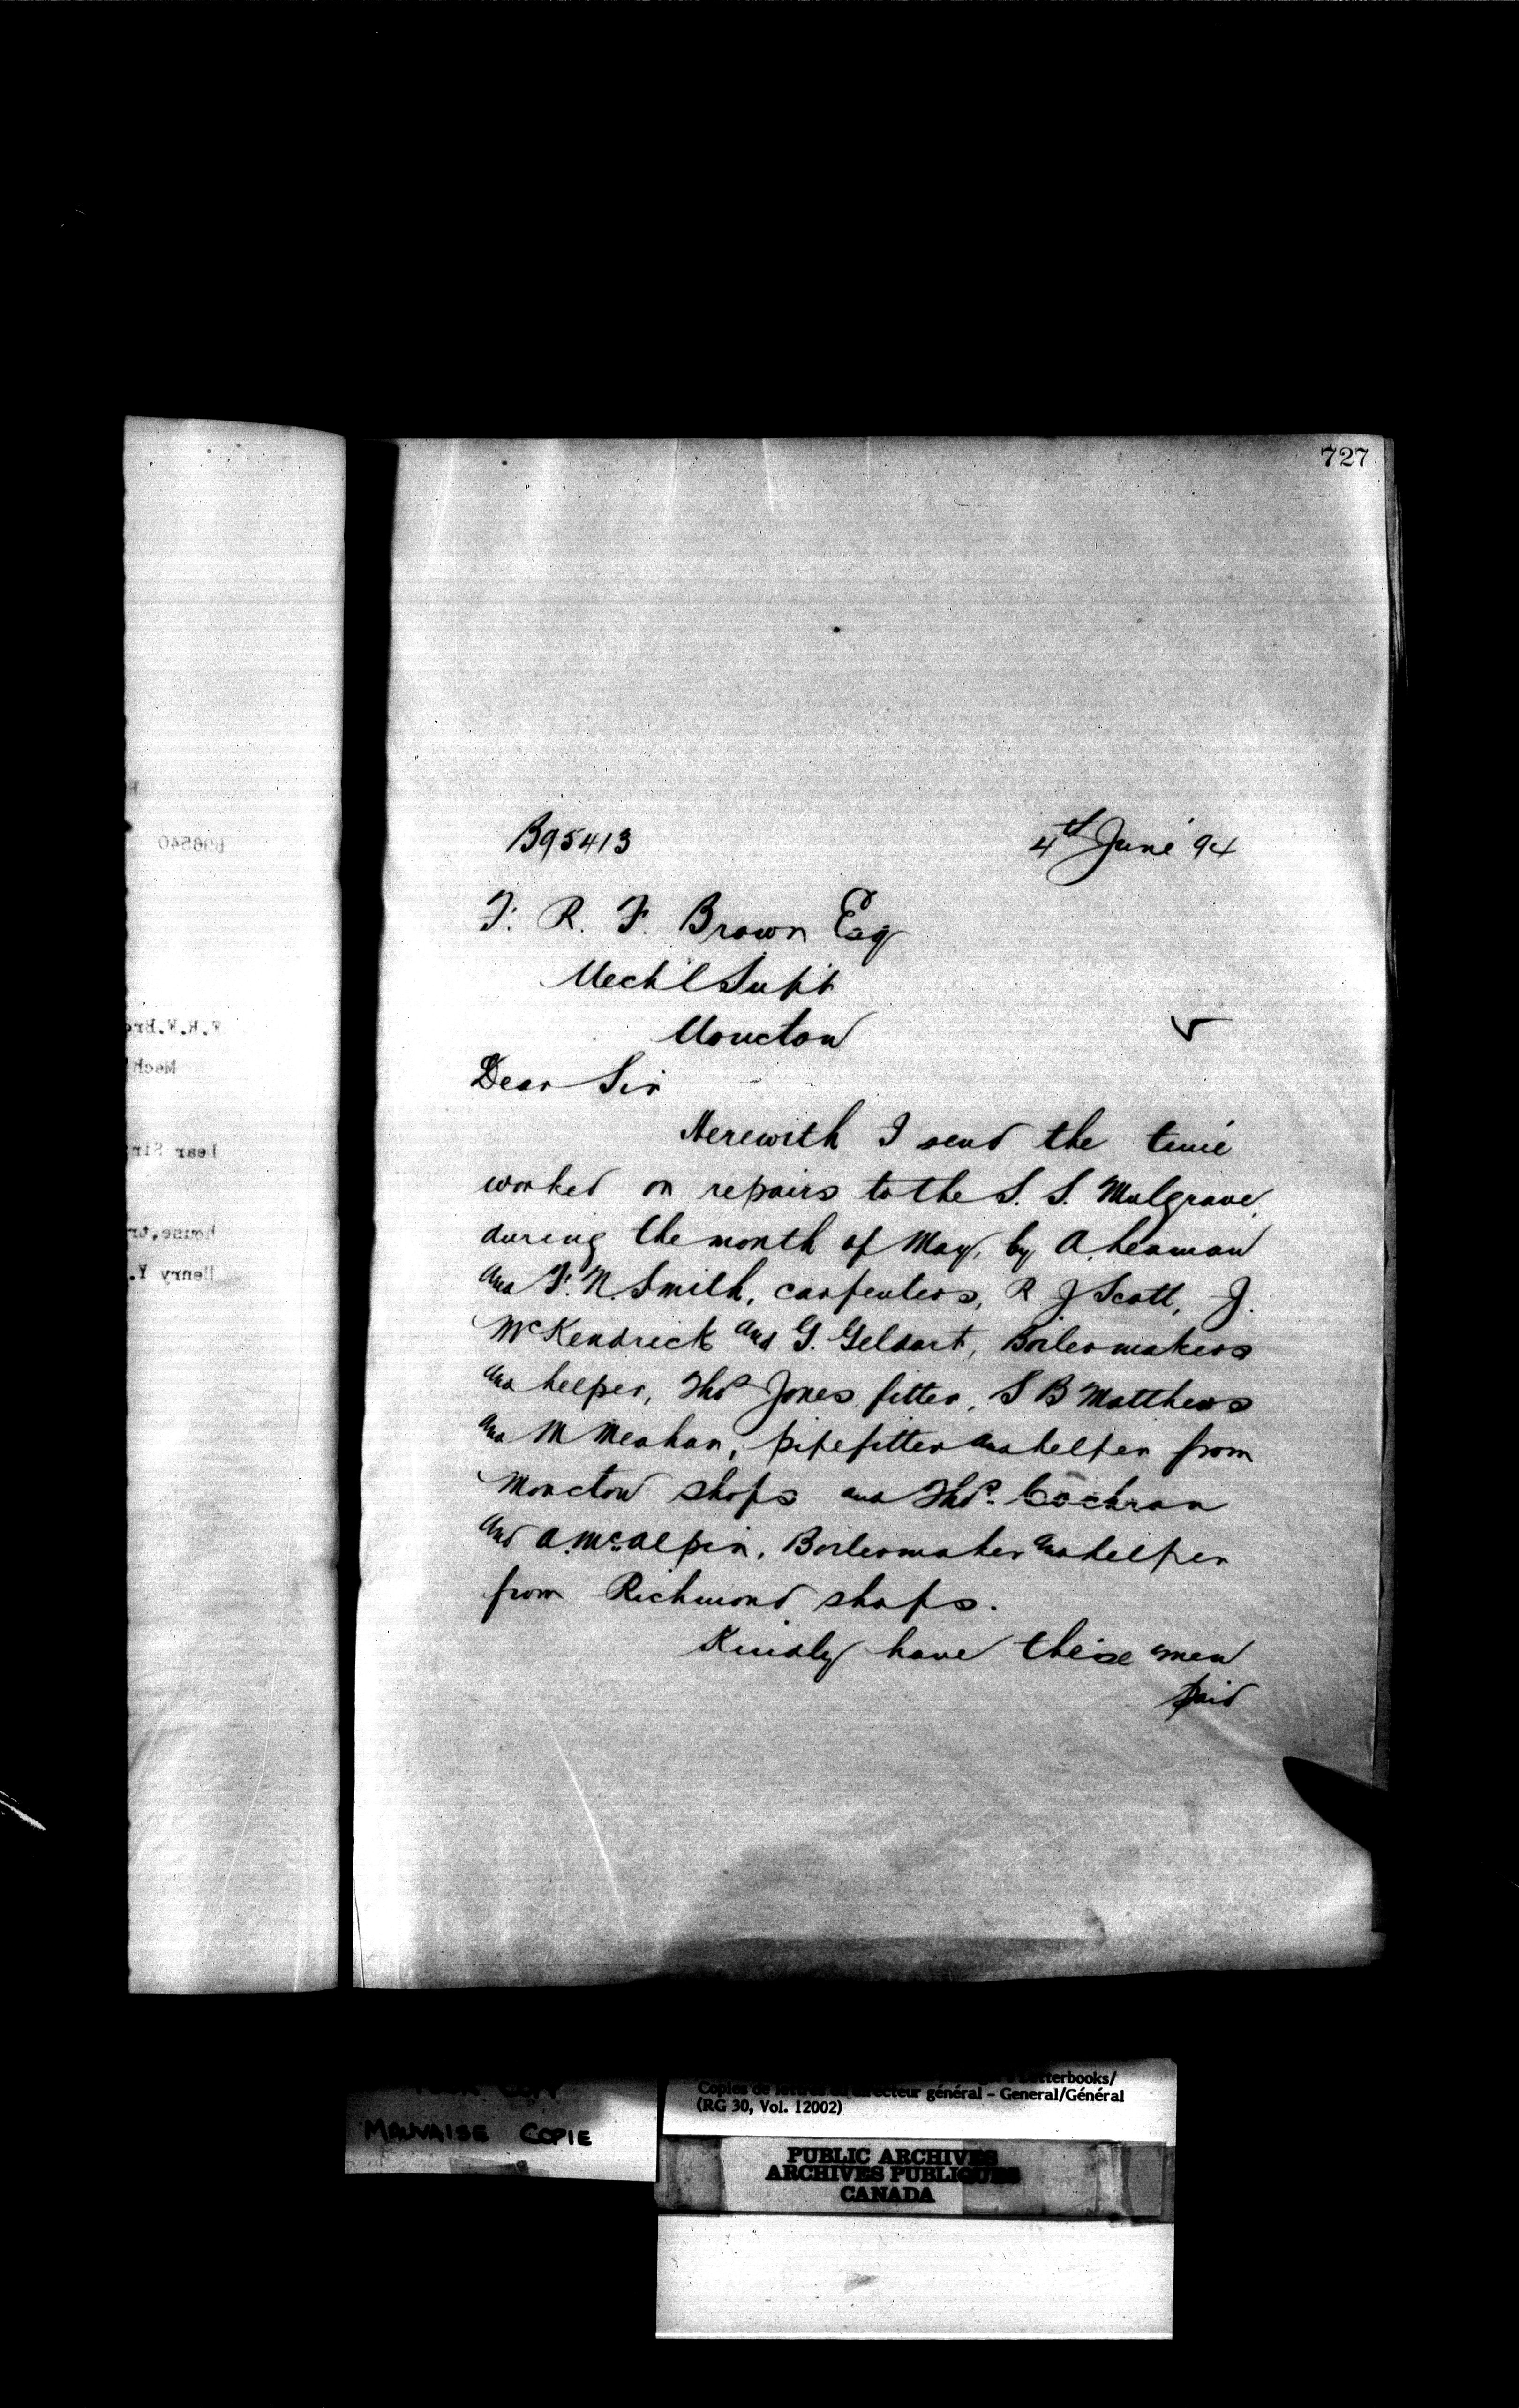 727
B95413 4th June 94
F. R. F. Brown Esq
Mech'l Supt
Moncton
Dear Sir
Herewith I send the time
worked on repairs to the S. S. Mulgrave,
during the month of May, by A. Leaman
and F. N. Smith, carpenters, R J Scott, J.
McKendrick and G. Geldart, Boilermakers
and helper, Thos Jones fitter, S B Matthews
and M Meahan, pipefitter and helper from
Moncton shops and Thos. Cochran
and A. McAlpin, Boilermaker and helper
from Richmond shops.
Kindly have these men
paid
F.R.F.Bro
Mech
Dear Sir
house,tr
Henry Y.
COPY
MAUVAISE COPIE
tterbooks/
Copies de lettres du directeur général – General/Général
(RG 30, Vol. 12002)
PUBLIC ARCHIVES
ARCHIVES PUBLIQUES
CANADA